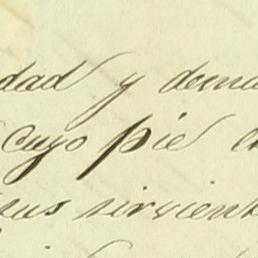 dad y dema
cuyo pie
sus sirvient